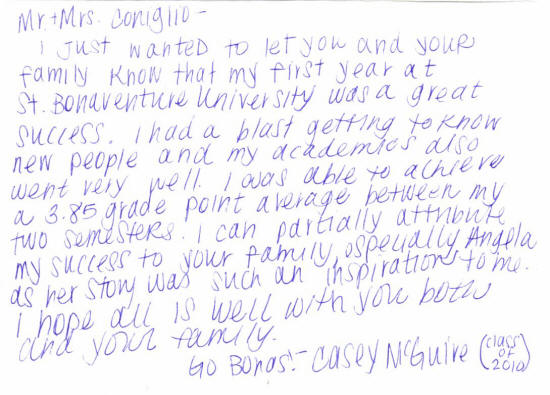 Mr. + Mrs. Coniglio -
I just wanted to let you and your
family know that my first year at
St. Bonaventure University was a great
success. I had a blast getting to know
new people and my academics also
went very well. I was able to achieve
a 3.85 grade point average between my
two semesters. I can partially attribute
my success to your family, especially Angela
as her story was such an inspiration to me.
I hope all is well with you both
and your family.
Go Bonas! - Casey McGuire (class
OF
2010)